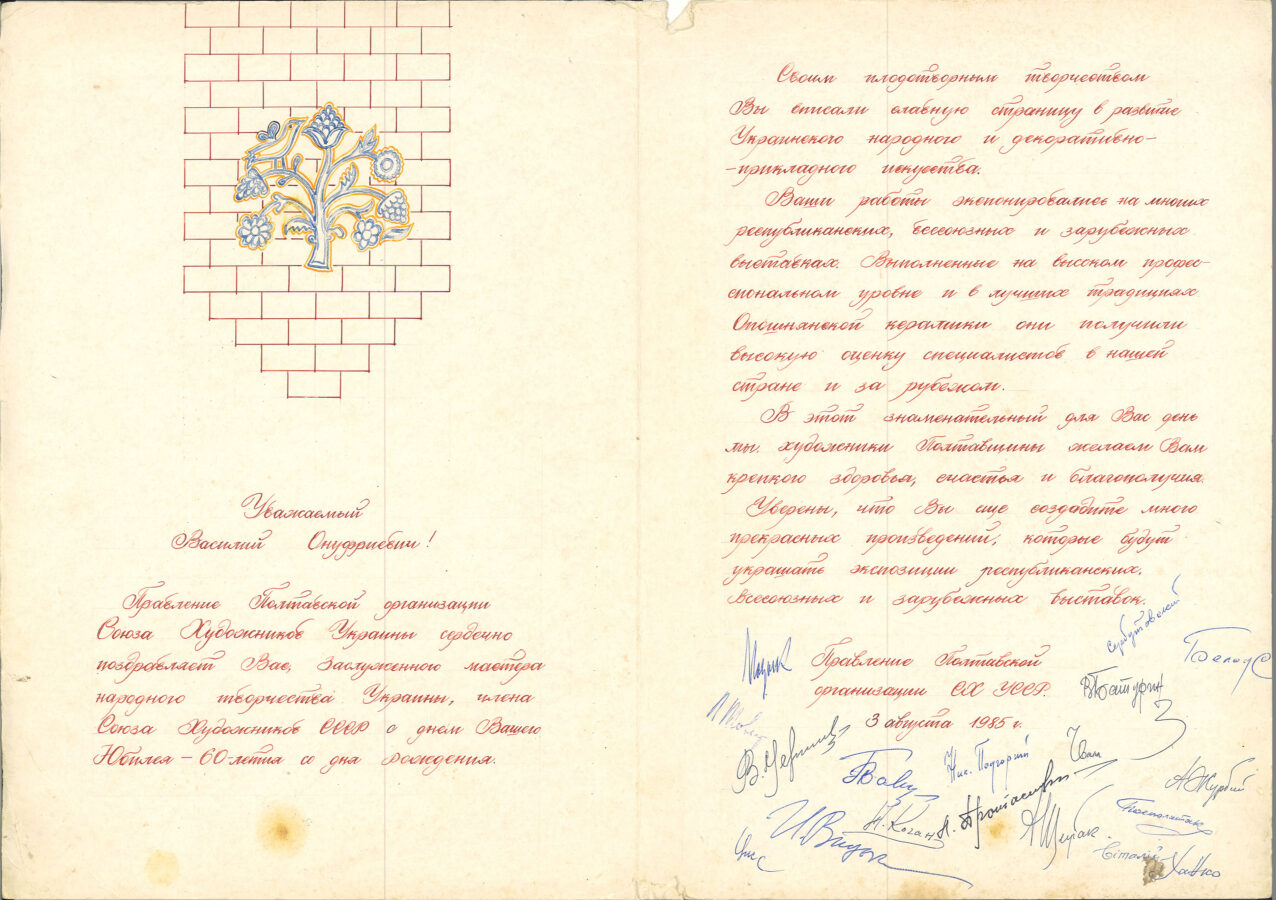 Уважаемый
Василий Онуфриевич!
Правление Полтавской организации
Союза Художников Украины сердечно
поздравляет Вас, Заслуженного мастера
народного творчества Украины, члена
Союза Художников СССР с днем Вашего
Юбилея – 60-летия со дня рождения.
Своим плодотворным творчеством
Вы вписали славную страницу в развитие
Украинского народного и декоративно-
-прикладного искусства.
Ваши работы экспонировались на многих
республиканских, всесоюзных и зарубежных
выставках. Выполненные на высоком профес-
сиональном уровне и в лучших традициях
Опошнянской керамики они получили
высокую оценку специалистов в нашей
стране и за рубежом.
В этот знаменательный для Вас день
мы художники Полтавщины желаем Вам
крепкого здоровья, счастья и благополучия.
Уверены, что Вы еще создадите много
прекрасных произведений, которые будут
украшать экспозиции республиканских,
всесоюзных и зарубежных выставок.
Правление Полтавской
организации СХ УССР.
3 августа 1985 г.
В Батурин
Ник. Подгорный
Н. Коган
А Щербак